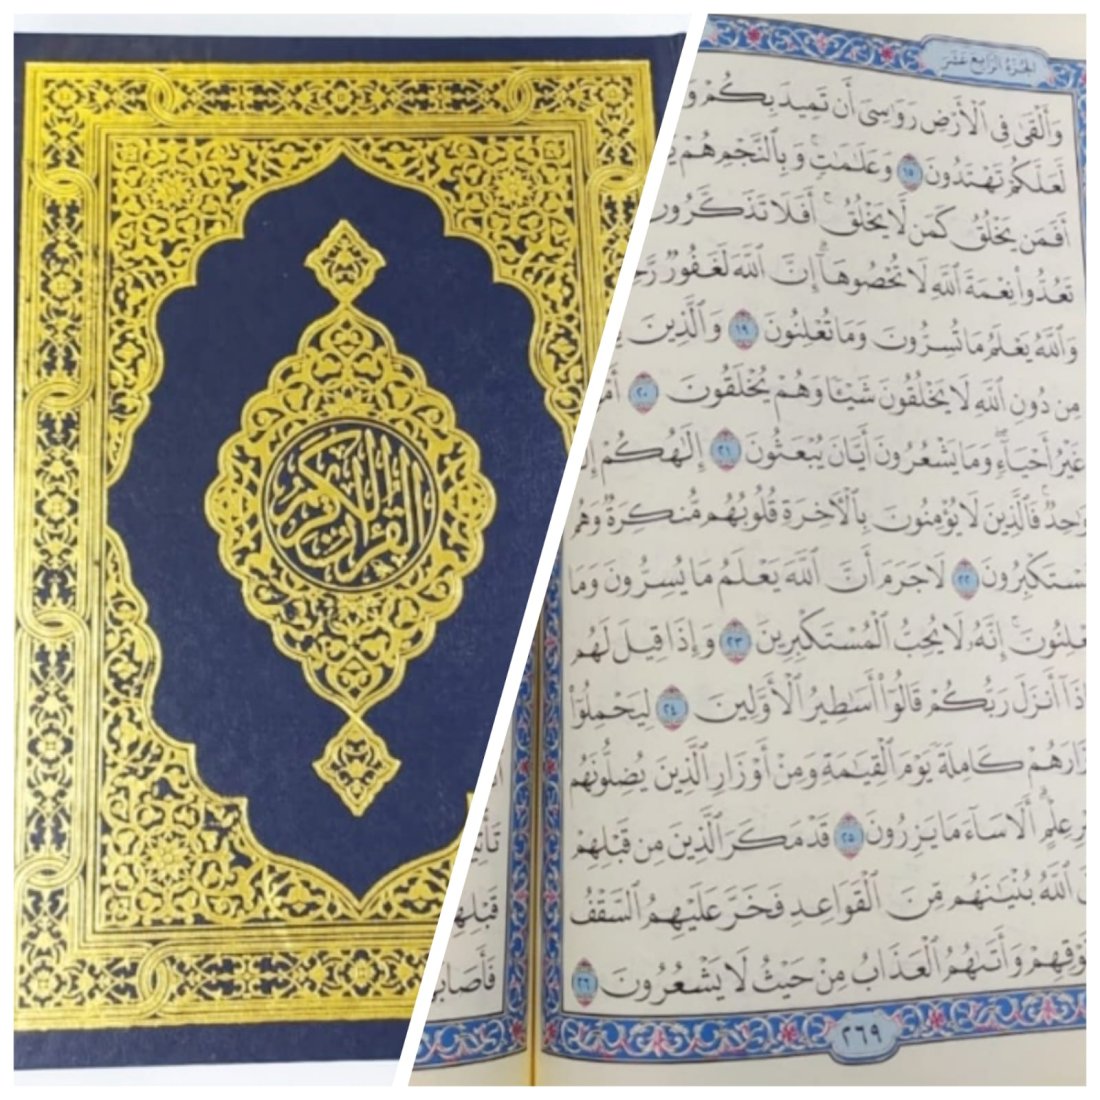 القرآن الكريم
الجزء الرابع عشر
وَأَلْقَىٰ فِي ٱلْأَرْضِ رَوَٰسِيَ أَن تَمِيدَ بِكُمْ
لَّعَلَّكُمْ تَهْتَدُونَ ١٥ وَعَلَٰمَٰتٍۚ وَبِٱلنَّجْمِ هُمْ
أَفَمَن يَخْلُقُ كَمَن لَّا يَخْلُقُۗ أَفَلَا تَذَكَّرُونَ
تَعُدُّوا۟ نِعْمَةَ ٱللَّهِ لَا تُحْصُوهَآۗ إِنَّ ٱللَّهَ لَغَفُورٌ
وَٱللَّهُ يَعْلَمُ مَا تُسِرُّونَ وَمَا تُعْلِنُونَ ١٩ وَٱلَّذِينَ
مِن دُونِ ٱللَّهِ لَا يَخْلُقُونَ شَيْـًٔا وَهُمْ يُخْلَقُونَ ٢٠
غَيْرُ أَحْيَآءٍۖ وَمَا يَشْعُرُونَ أَيَّانَ يُبْعَثُونَ ٢١ إِلَٰهُكُمْ
وَٰحِدٌۚ فَٱلَّذِينَ لَا يُؤْمِنُونَ بِٱلْءَاخِرَةِ قُلُوبُهُم مُّنكِرَةٌ وَهُم
مُّسْتَكْبِرُونَ ٢٢ لَا جَرَمَ أَنَّ ٱللَّهَ يَعْلَمُ مَا يُسِرُّونَ وَمَا
يُعْلِنُونَۚ إِنَّهُۥ لَا يُحِبُّ ٱلْمُسْتَكْبِرِينَ ٢٣ وَإِذَا قِيلَ لَهُم
مَّاذَآ أَنزَلَ رَبُّكُمْ قَالُوٓا۟ أَسَٰطِيرُ ٱلْأَوَّلِينَ ٢٤ لِيَحْمِلُوٓا۟
أَوْزَارَهُمْ كَامِلَةً يَوْمَ ٱلْقِيَٰمَةِۙ وَمِنْ أَوْزَارِ ٱلَّذِينَ يُضِلُّونَهُم
عِلْمٍۗ أَلَا سَآءَ مَا يَزِرُونَ ٢٥ قَدْ مَكَرَ ٱلَّذِينَ مِن قَبْلِهِمْ
ٱللَّهُ بُنْيَٰنَهُم مِّنَ ٱلْقَوَاعِدِ فَخَرَّ عَلَيْهِمُ ٱلسَّقْفُ
فَوْقِهِمْ وَأَتَىٰهُمُ ٱلْعَذَابُ مِنْ حَيْثُ لَا يَشْعُرُونَ ٢٦
٢٦٩